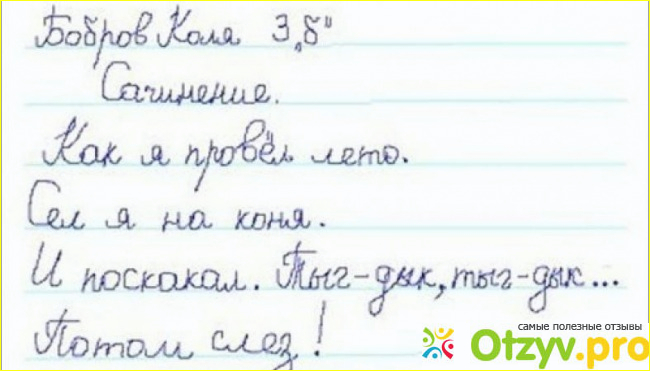 Бобров Коля 3 „б"
Сочинение.
Как я провёл лето.
Сел я на коня.
И поскакал. Тыг-дык, тыг-дык...
Потом слез!
самые полезные отзывы
Otzyv.pro